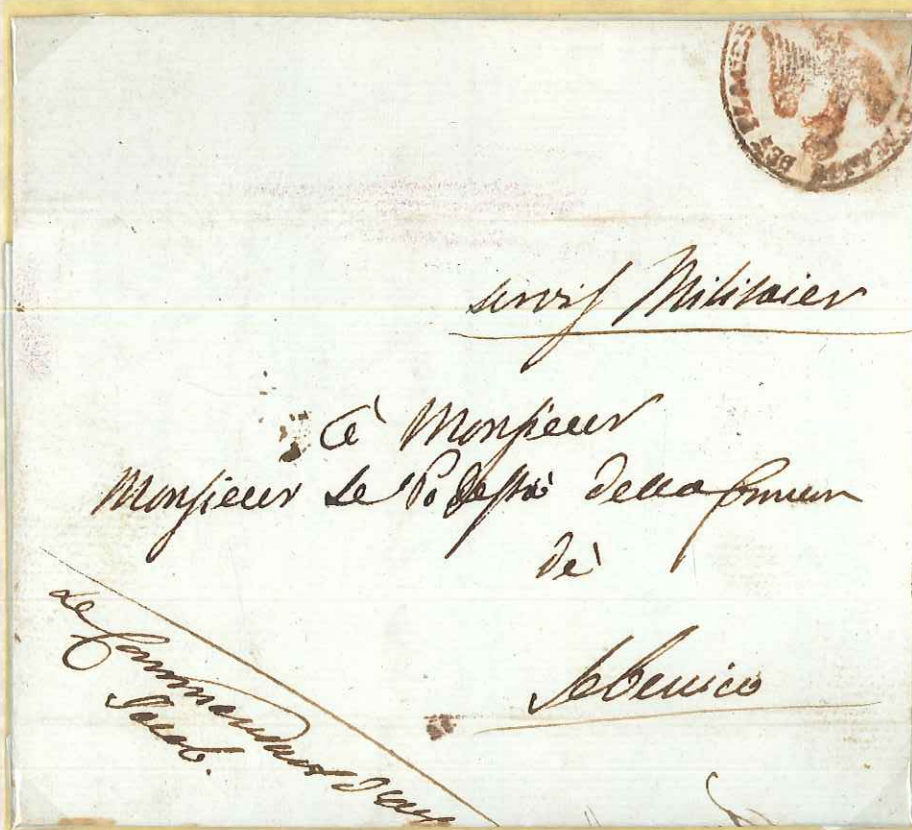 DES PLACES
servis Militaier
à Monsieur
Monsieur Le Podestà della Comun
de
Sebenico
Le Commandant